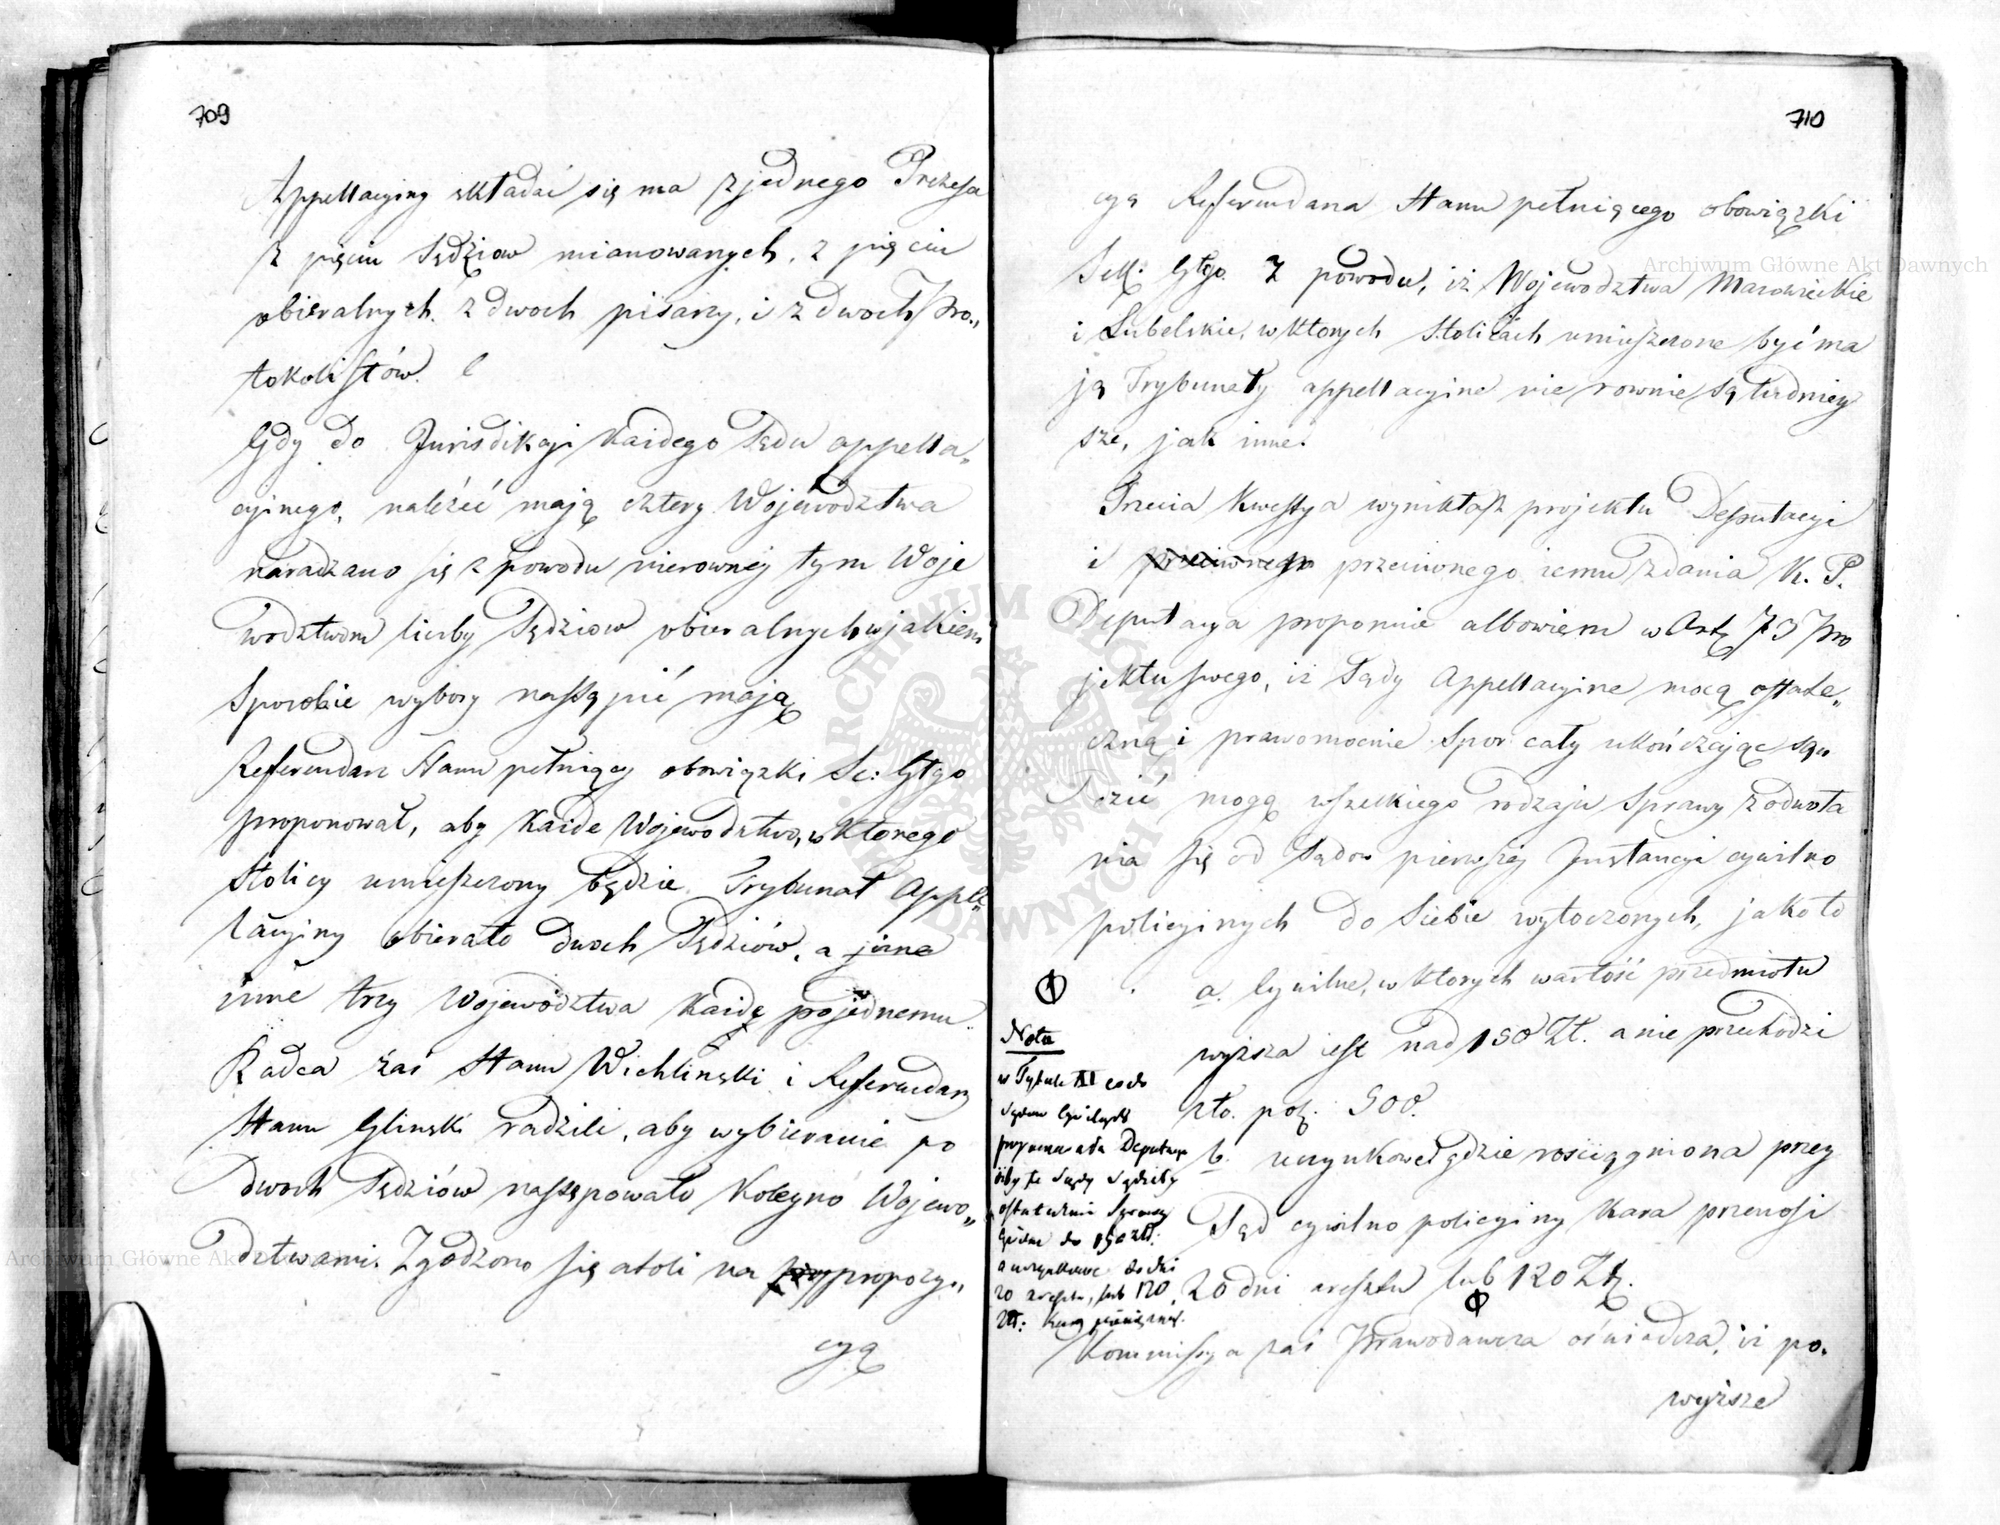 709
Appellacyiny składać się ma z jednego Prezesa
z pięciu Sędziow mianowanych, z pięciu
obieralnych, z dwoch pisarzy, i z dwoch Pro„
tokolistów.
Gdy do Jurisdikcji każdego Sądu appella„
cyinego, należeć mają cztery Województwa
naradzano się z powodu nierowney tym Woje
wodztwom liczby Sędziow obieralnych w jakiem
Sposobie wybory nastąpić mają
Referendarz Stanu pełniący obowiązki Se: Głgo
proponował, aby każde Wojewodztwo, w którego
Stolicy umieszczony będzie Trybunał Appel„
lacyiny obierało dwoch Sędziów, a jnne
inne trzy Województwa każde po jednemu.
Radca zaś Stanu Wichliński i Referendarz
Stanu Gliński radzili, aby wybieranie po
dwoch Sędziów następowało koleyno Wojewo„
dztwami. Zgodzono się atoli na propozy„
cyą
710
cyą Referendarza Stanu pełniącego obowiązki
Sek: Głgo. Z powodu, iż Wojewodztwa Mazowieckie
i Lubelskie, w ktorych Stolicach umieszczone być ma
ją Trybunały appellacyine nie rownie są ludniey
sze, jak inne.
Trzecia kwestya wynikła z projektu Deputacyi
i przeciwnego przeciwnego iemu zdania K. P.
Deputacya proponuie albowiem w Art. 73 Pro
jektu swego, iż Sądy Appellacyine mocą ostate„
czną i prawomocnie Spor cały ukończając są„
dzić mogą wszelkiego rodzaju Sprawy z odwoła
nia się od Sądow pierwszey Instancyi cywilno
policyinych do siebie wytoczonych, jako to
a. Cywilne, w ktorych wartość przedmiotu
wyższa iest nad 150 Zł. a nie przechodzi
zło. pol. 500.
b. uczynkowe gdzie rosciągniona przez
Sąd cywilno policyiny kara przenosi
20 dni aresztu lub 120 Zł.
Kommissya zaś Prawodawcza oświadcza, iż po„
wyższe
Nota
w Tytule III co do
Sądow Cywilnych
proponowała Deputacya
iżby te Sądy Sądziły
ostatecznie Sprawy
Cywilne do 150 złł:
a uczynkowe do dni
20 aresztu, lub 120
Złł: kary pieniężney.
Archiwum Główne Akt Dawnych
Archiwum Główne Akt Dawnych
ARCHIWUM GŁÓWNE AKT DAWNYCH